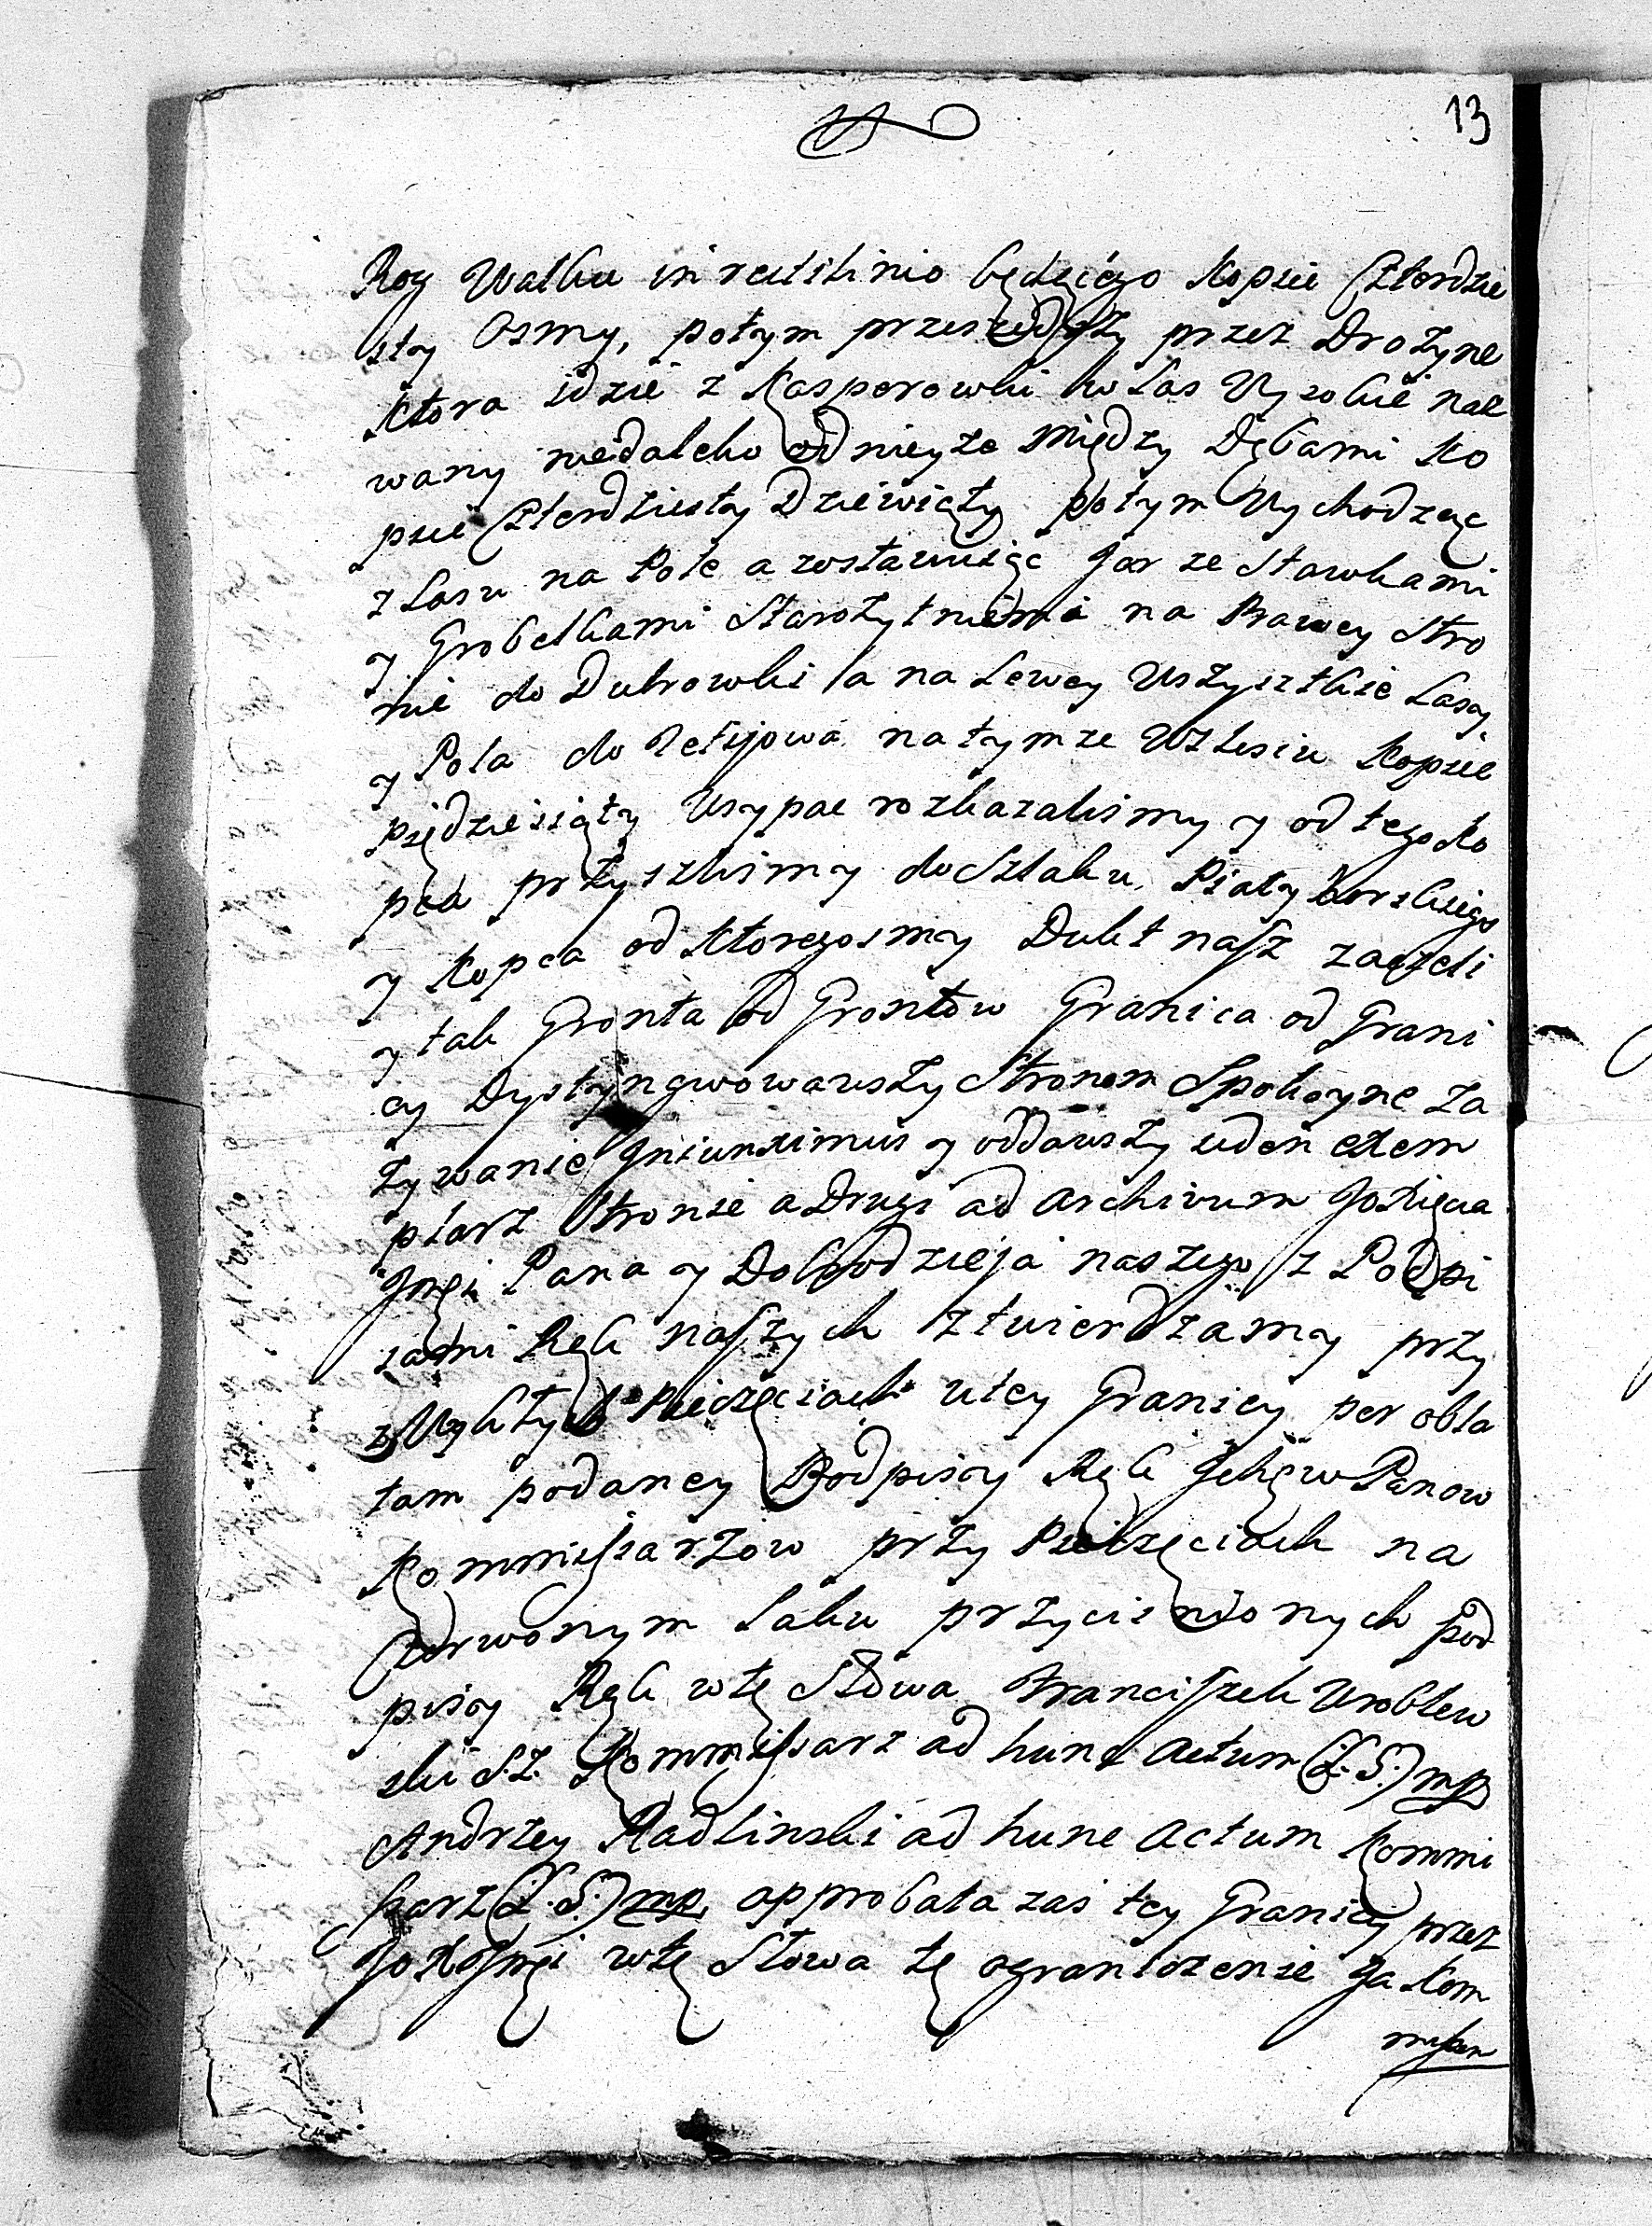 13
Rog Walku in rectilinio będącego Kopiec Czterdzie
sty Osmy, potym przeszedszy przez Drożyne
Ktora idzie z Kasperowki w Las Wyzolie nal
wany niedaleko od nieyze Między Dębami Ko
piec Czterdziesty Dziewiąty potym Wychodząc
z Lasu na Pole a zostawuiąc Jar ze Stawkami
y Grobelkami Starożytniemi na Prawey Stro
nie do Dubrowki a na Lewey Wszystkie Lasy
y Pola do Tetijowa na tymze Wzlesiu Kopiec
piędziesiąty Usypac rozkazalismy y od tego Ko
pca przyszlismy do Szlaku Piatyhorskiego
y Kopca od Ktoregosmy Dukt nasz zaczeli
y tak Gronta od Grontow Granica od Grani
cy Dystyngwowawszy Stronom Spokoyne za
żywanie Jniunximus y oddawszy ieden exem
plarz Stronie a Drugi ad Archivum JoXięcia
Jmci Pana y Dobrodzieja naszego z Podpi
sami Rąk naszych ztwierdzamy przy
zwykłych Pieczęciach u tey Granicy per obla
tam podaney Podpisy Rąk Ichmw Panow
Kommissarzow przy Pieczęciach na
Czerwonym Laku przycisnionych pod
pisy Rąk w te Słowa Franciszek Wroblew
ski S.Z. Kommissarz ad hunc Actum (L.S.) mp
Andrzey Radlinski ad hunc Actum Kommi
ssarz (L.S.) mp. approbata zaś tey Granicy przez
JoXJmci w te Słowa te ograniczenie Ja Kom
missar